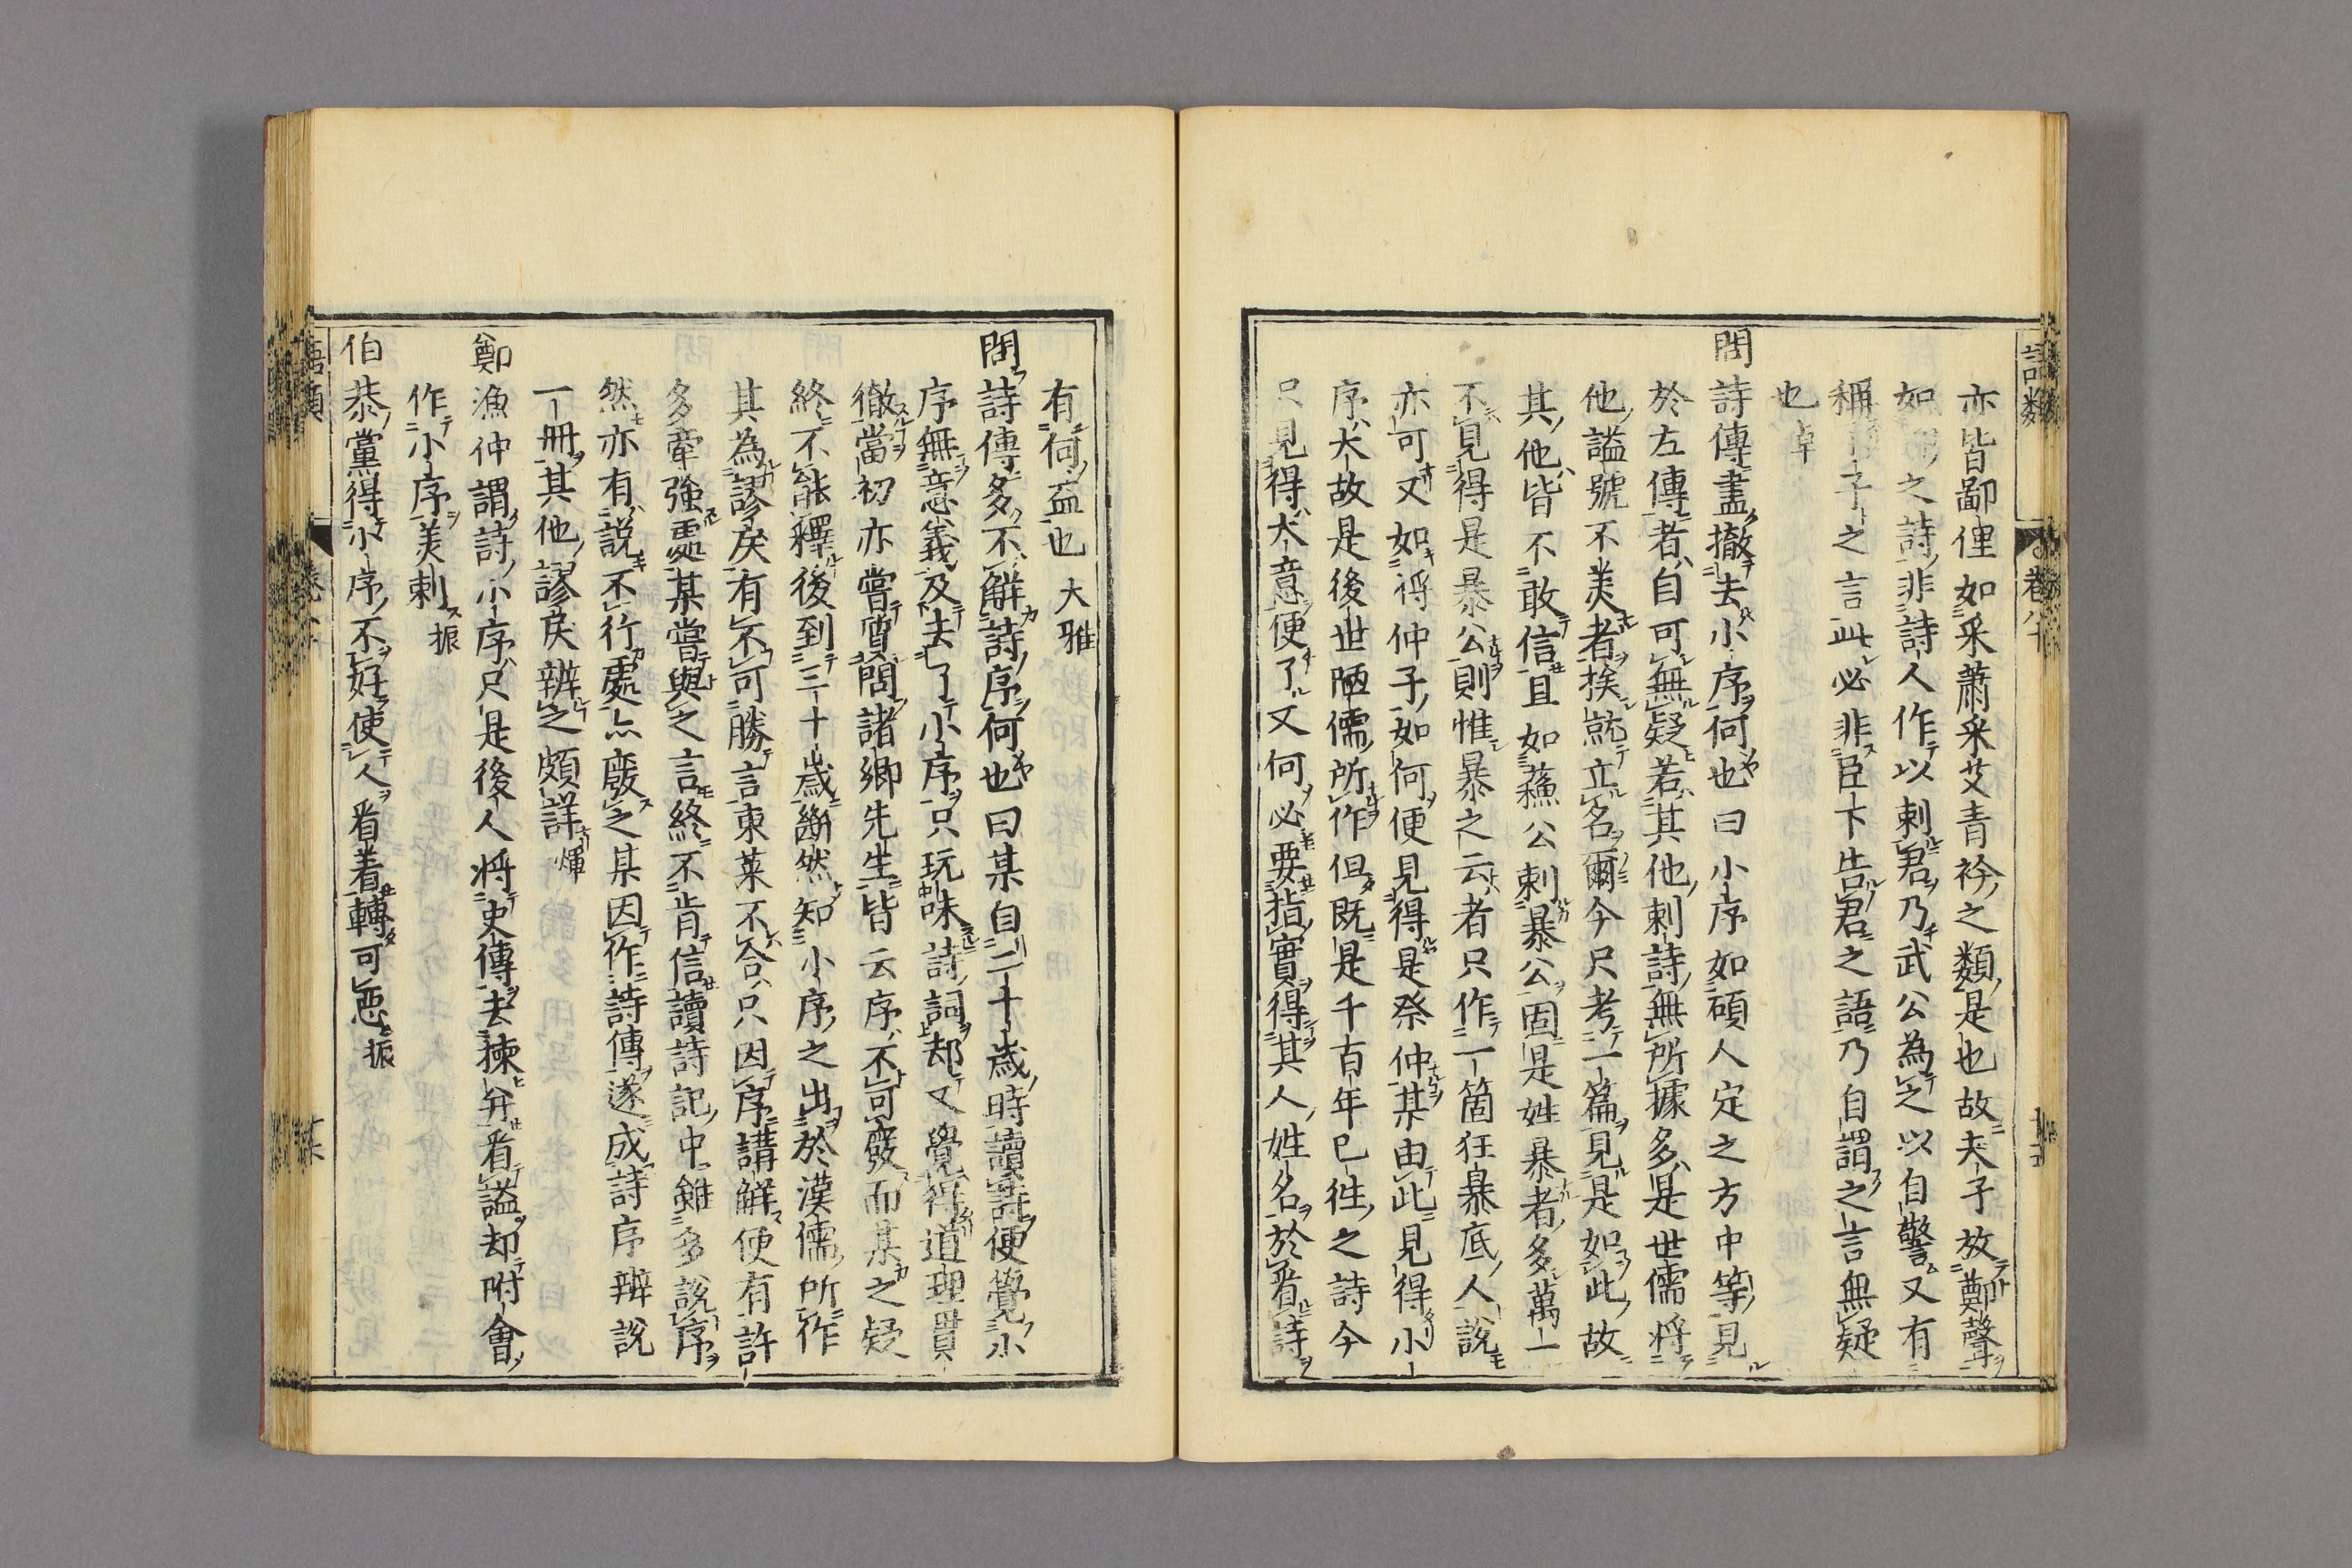 語類 卷八十
亦皆鄙俚如采蕭采艾青衿之類是也故夫子放鄭聲
如之詩非詩人作以刺君乃武公為之以自警又有
稱子之言此必非臣下告君之語乃自謂之言無疑
也卓
問詩傳盡撤去小序何也曰小序如碩人定之方中等見
於左傳者自可無疑若其他刺詩無所據多是世儒將
他謚號不美者挨就立名爾今只考一篇見是如此故
其他皆不敢信且如蘓公刺暴公固是姓暴者多萬一
不見得是暴公則惟暴之云者只作一箇狂暴底人說
亦可又如将仲子如何便見得是祭仲某由此見得小
序大故是後世陋儒所作但既是千百年已往之詩今
只見得大意便了又何必要指實得其人姓名於看詩
有何益也大雅
問詩傳多不解詩序何也曰某自二十歲時讀詩便覺小
序無意義及去了小序只玩味詩詞却又覺得道理貫
徹當初亦嘗質問諸鄉先生皆云序不可廢而某之疑
終不能釋後到三十歲斷然知小序之出於漢儒所作
其為謬戾有不可勝言東萊不合只因序講解便有許
多牽強處某嘗與之言終不肯信讀詩記中雖多說序
然亦有說不行處亦廢之某因作詩傳遂成詩序辨說
一冊其他謬戾辨之頗詳煇
鄭漁仲謂詩小序只是後人将史傳去揀并看謚却附會
作小序美刺振
伯恭黨得小序不好使人看着轉可惡振
語類